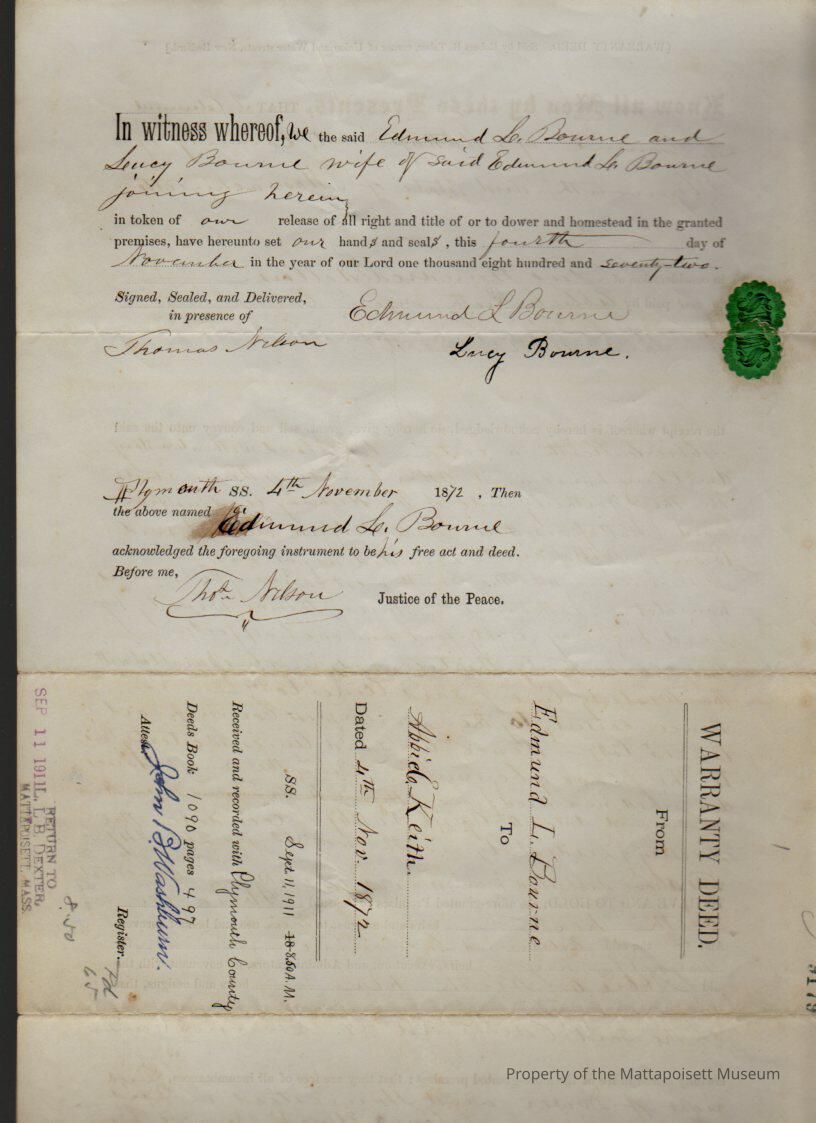 In witness whereof, We the said Edmund L. Bourne and
Lucy Bourne wife of said Edmund L. Bourne
joining herein
in token of our release of all right and title of or to dower and homestead in the granted
premises, have hereunto set our hands and seals, this fourth day of
November in the year of our Lord one thousand eight hundred and seventy-two.
Signed, Sealed, and Delivered,
in presence of
Edmund L Bourne
Thomas Nelson
Lucy Bourne.
Plymouth SS. 4th November 1872 , Then
the above named Edmund L. Bourne
acknowledged the foregoing instrument to be his free act and deed.
Before me,
Thos. Nelson Justice of the Peace.
WARRANTY DEED.
From
Edmund L. Bourne
To
Keith.
Dated 4th Nov. 1872
SS. Sept. 11, 1911 18 8.50 A.M.
Received and recorded with Plymouth County
Deeds Book 1090 pages 497
Attest,
John B. Washburn.
Register.
RETURN TO
L. B. DEXTER,
MATTAPOISETT, MASS.
SEP 11 1911
8.50
Pd
65
9179
Property of the Mattapoisett Museum